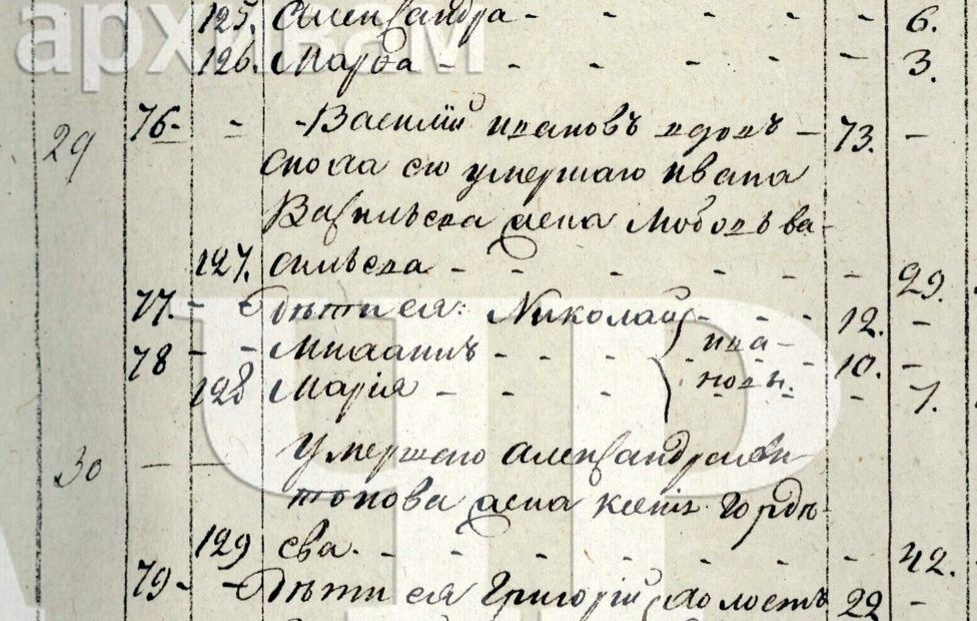 125. Александра - - - - - 6.
126. Марѳа - - - - - - 3.
29 76. - - Василій Ивановъ вдовъ - 73. -
сноха его умершаго Ивана
Васильева жена Любовь Ва-
127. сильева - - - - - - 29.
77. - Дѣти ея: Николай - - - 12. -
78 - - Михаилъ - - - - Ива- 10. -
128 Марія - - - новы. - - 7.
30 — — Умершаго Александра Ан-
тонова жена Ксенія Гордѣ-
129 ева. - - - - - - 42.
79 - - Дѣти ея Григорій холостъ 22 -